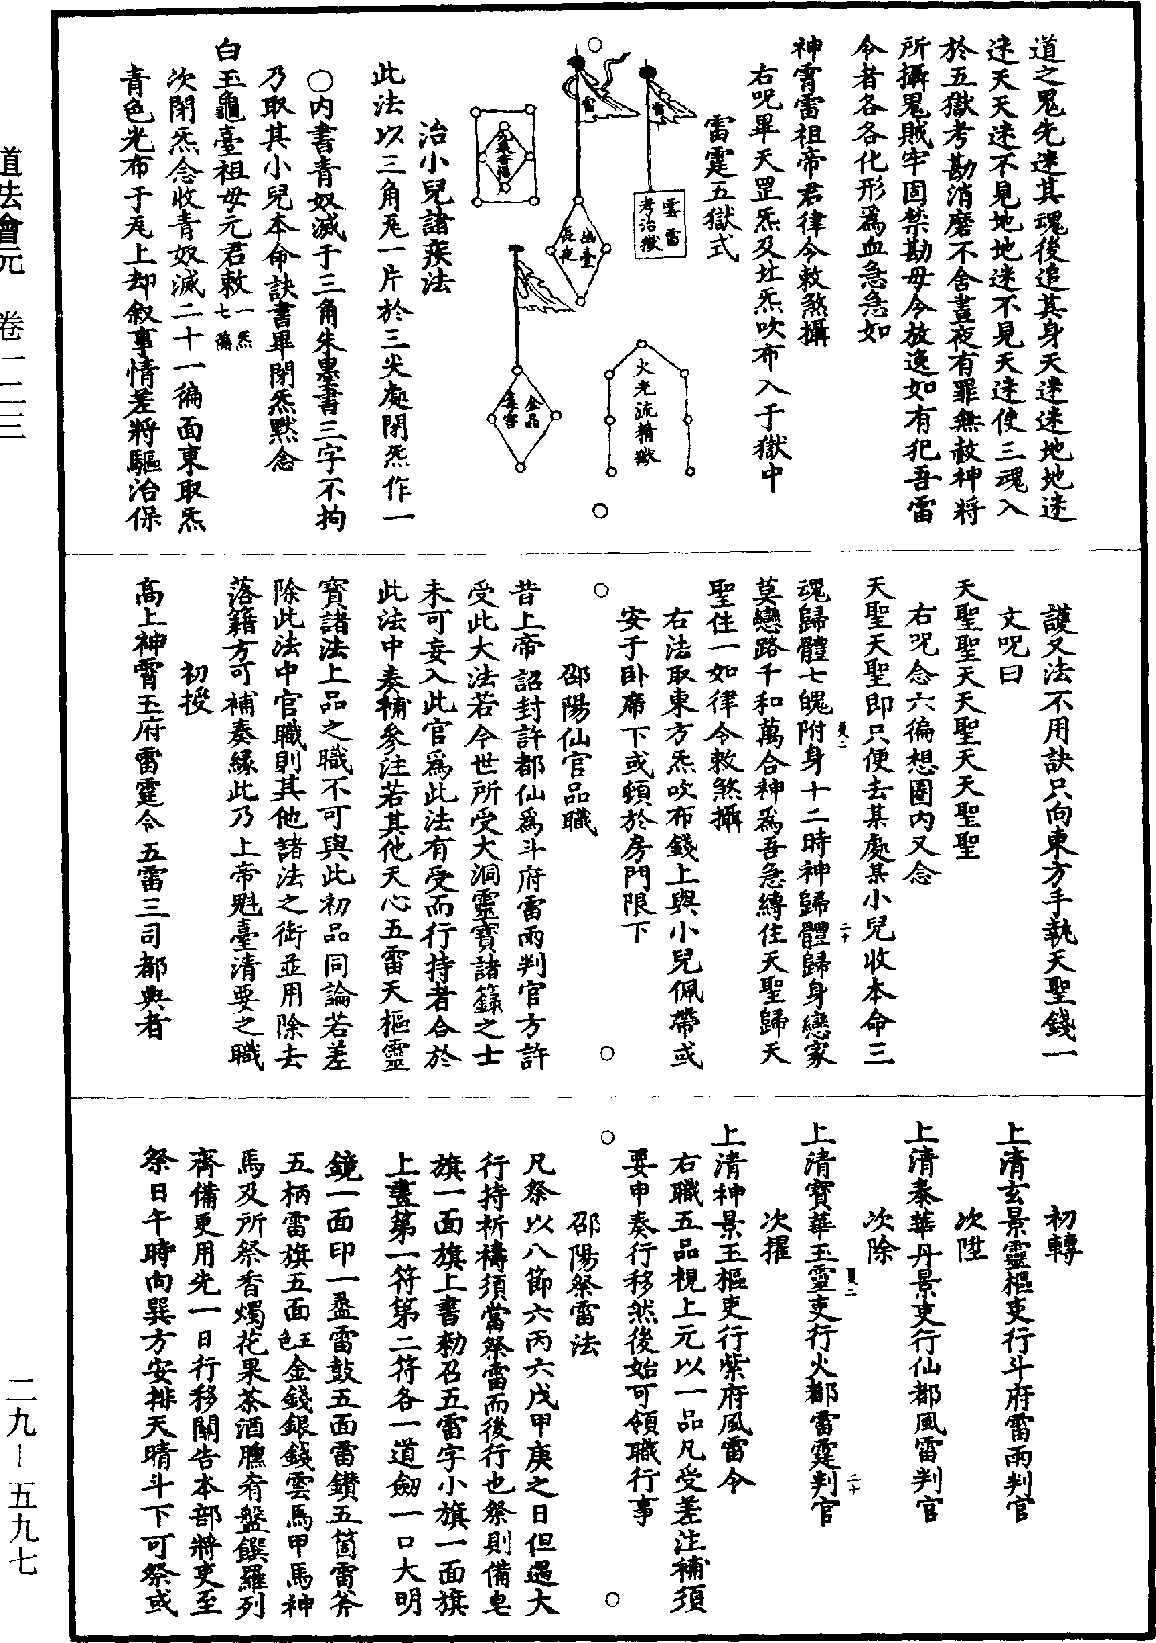 道之鬼先迷其魂後追其身天迷迷地地迷
迷天天迷不見地地迷不見天迷使三魂入
於五獄考勘消磨不舍晝夜有罪無赦神將
所攝鬼賊牢固禁勘毋令放逸如有犯吾雷
令者各各化形為血急急如
神霄雷祖帝君律令敕煞攝
右呪畢天罡炁及𡉏炁吹布入于獄中
雷霆五獄式
雷
雲雷
考治獄
雷
幽臺
長夜
火光流精獄
金晶
治小兒諸疾法
此法以三角瓦一片於三尖處閉炁作一
○內書青奴滅于三角朱墨書三字不拘
乃取其小兒本命訣書畢閉炁默念
白玉龜臺祖母元君敕一炁七遍
次閉炁念收青奴滅二十一徧面東取炁
青色光布于瓦上却敘事情差將驅治保
護又法不用訣只向東方手執天聖錢一
文呪曰
天聖聖天天聖天天天聖聖
右呪念六徧想圈内又念
天聖天聖即只便去某處某小兒收本命三
魂歸體七魄附身十二時神歸體歸身戀家
莫戀路千和萬合神為吾急縛住天聖歸天
聖住一如律令敕煞攝
右法取東方炁吹布錢上與小兒佩帶或
安于卧席下或頓於房門限下
邵陽仙官品職
昔上帝詔封許都仙為斗府雷雨判官方許
受此大法若今世所受大洞靈寶諸籙之士
未可妄入此官為此法有受而行持者合於
此法中奏補參注若其他天心五雷天樞靈
寶諸法上品之職不可與此初品同論若差
除此法中官職則其他諸法之銜並用除去
落籍方可補奏緣此乃上帝魁臺清要之職
初授
高上神霄玉府雷霆令五雷三司都典者
初轉
上清玄景靈樞吏行斗府雷雨判官
次陞
上清泰華丹景吏行仙都風雷判官
次除
上清寶華玉靈吏行火都雷霆判官
次擢
上清神景玉樞吏行紫府風雷令
右職五品視上元以一品凡受差注補須
要申奏行移然後始可領職行事
邵陽祭雷法
凡祭以八節六丙六戊甲庚之日但遇大
行持祈禱須當祭雷而後行也祭則備皂
旗一面旗上書勑召五雷字小旗一面旗
上畫第一符第二符各一道劔一口大明
鏡一面印一盝雷鼓五面雷鑽五箇雷斧
五柄雷旗五面五色金錢銀錢雲馬甲馬神
馬及所祭香燭花果茶酒臕脊盤饌羅列
齊備更用先一日行移關告本部將吏至
祭日午時向巽方安排天晴斗下可祭或
道法會元　卷一二三
二九－五九七